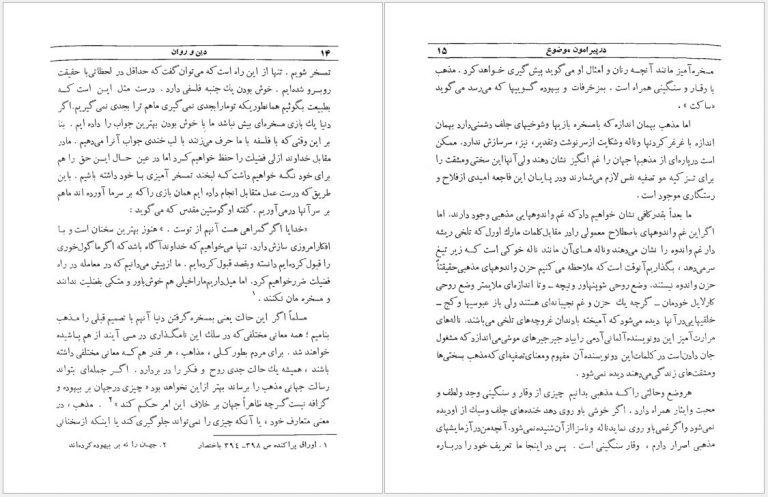 ۱۴ دین و روان
تمسخر شویم . تنها از این راه است که می‌توان گفت که حداقل در لحظاتی با حقیقت
روبرو شده‌ایم . خوش بودن یك جنبه فلسفی دارد . درست مثل این است کـه
بطبیعت بگوئیم همانطوریکه تو مارا بجدی نمی گیری ماهم ترا بجدی نمی‌گیریم . اگر
دنیا یك بازی مسخره‌ای بیش نباشد ما با خوش بودن بهترین جواب را داده ایم . بنا
بر این وقتی که با فلسفه با ما حرف می‌زنند با لب خندی جواب آنرا می‌دهیم . ما در
مقابل خداوند ازلی فضیلت را حفظ خواهیم کرد اما در عین حـال ایـن حق را هم
برای خود نگه خواهیم داشت که لبخند تمسخر آمیزی بـا خود داشته باشیم . باین
طریق که درست عمل متقابل انجام داده ایم همان بازی را که بر سر ما آورده اند ماهم
بر سر آنها درمی‌آوریم . گفته اوگوستین مقدس که می‌گوید :
«خدایا اگر گمراهی هست آنهم از توست . » هنوز بهترین سخنان است و بـا
افکار امروزی سازش دارد. تنها می‌خواهیم که خداوند آگاه باشد که اگر ما گول خوری
را قبول کرده‌ایم دانسته و بقصد قبول کرده‌ایم . ما از پیش می‌دانیم که در معامله در راه
فضیلت ضرر خواهیم کرد. اما میل داریم ما را خیلی هم خوش‌باور و متکی بفضیلت ندانند
و مسخره مان نکنند .۱
مسلماً اگر این حالت یعنی بمسخره گرفتن دنیا آنهم با تصمیم قبلی را مذهب
بنامیم ؛ همه معانی مختلفی که در سلك این نامگذاری در مـی آیند از هم پاشیده
خواهند شد . برای مردم بطور کلـی ، مذاهب ، هر قدر هم کـه معانی مختلفی داشته
باشند ، همیشه یك حالت جدی روح و فکر را در بردارد . اگـر جمله‌ای بتواند
رسالت جهانی مذهب را برساند بهتر از این نخواهد بود « چیزی در جهان بر بیهوده و
گزافه نیست گرچه ظاهراً جهان بر خلاف این امر حکم کند »۲ . مذهب ، در
معنی متعارف خود ، یا آنکه چیزی را نمی‌تواند جلوگیری کند یا اینکه از سخنانی
۱ . اوراق پراکنده ص ۳۹۸ـ ۳۹۴ باختصار ۲ . جهـان را نه بر بیهوده کرده‌اند
۱۵ در پیرامون موضوع
مسخره آمیز مانند آنچـه رنان و امثال او می‌گوید پیش گیری خواهد کرد . مذهب
با وقـار و سنگینی همراه است . بمزخرفات و بیهوده گـوییها که می‌رسد می‌گوید
«ساکت» .
اما مذهب بهمان اندازه که با مسخره بازیها و شوخیهای جلف دشمنی دارد بهمان
اندازه با غرغر کردنها و ناله و شکایت از سرنوشت و تقدیر ، نیز، سرسازش ندارد. ممکن
است در پاره‌ای از مذهبها جهان را غم انگیز نشان دهند ولی آنها این سختی و مشقت را
برای تـزکیه و تصفیه نفس لازم می‌شمارند و در پـایـان این فاجعه امیدی از فلاح و
رستگاری موجود است .
ما بعداً بقدر کافی نشان خواهیم داد که غم و اندوههایی مذهبی وجود دارند. اما
اگر این غم و اندوههای باصطلاح معمولی را در مقابل کلمات مارك اورل که تلخی ریشه
دار غم و اندوه را نشان می‌دهند و ناله های آن مانند ناله خوکی است کـه زیر تیغ
سر می‌دهد ، بگذاریم آنوقت است که ملاحظه می کنیم حزن و اندوههای مذهبی حقیقتاً
حزن و اندوه نیستند. وضع روحی شوپنهاور و نیچه ــ و تا اندازه‌ای ملایمتر وضع روحی
کارلایل خودمان ــ گرچه یك حزن و غم نجیبانه‌ای هستند ولی باز عبوسیها و کج ــ
خلقیهایی در آنها دیده می‌شود که آمیخته با دندان غروچه‌های تلخی می‌باشند. ناله‌های
مرارت آمیز این دو نویسنده آلمانی آدمی را بیاد جیرجیرهای موشی می‌اندازد که مشغول
جان دادن است در کلمات این دو نویسنده آن مفهوم و معنای تصفیه‌ای که مذهب بسختی‌ها
و مشقت‌های زندگی می‌دهند دیده نمی‌شود .
هر وضع و حالتی را کـه مذهبی بدانیم چیزی از وقار و سنگینی و جد و لطف و
محبت و ایثار همراه دارد . اگر خوشی باو روی دهد خنده‌های جلف و سبك از او دیده
نمی‌شود و اگر غمی باو روی نماید ناله و ناسزا از آن شنیده نمی‌شود. آنچه من در آزمایشهای
مذهبی اصرار دارم ، وقار سنگینی است . پس در اینجا ما تعریف خود را دربـاره